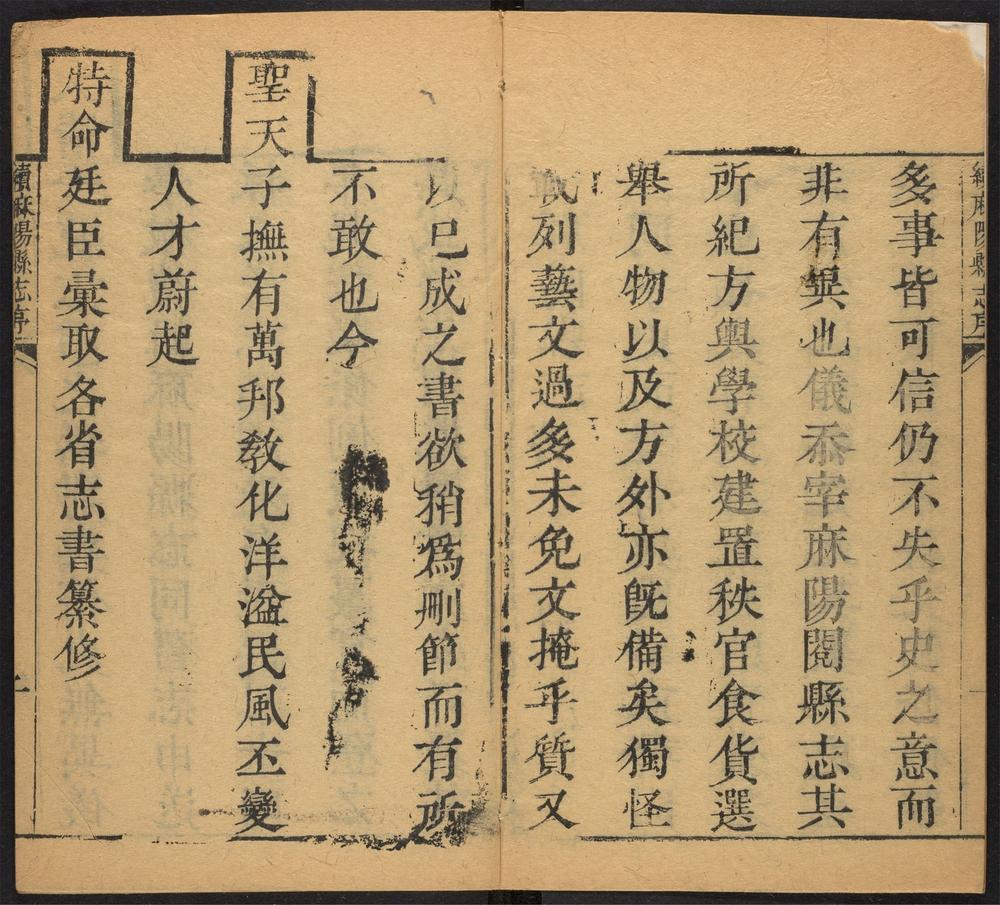 續麻陽縣志序
多事皆可信仍不失乎史之意而
非有異也儀忝宰麻陽閱縣志其
所紀方輿學校建置秩官食貨選
舉人物以及方外亦旣備矣獨怪
載列藝文過多未免文掩乎質又
以已成之書欲稍爲刪節而有所
不敢也今
聖天子撫有萬邦敎化洋溢民風丕變
人才蔚起
特命廷臣彙取各省志書纂修
續麻陽縣志序